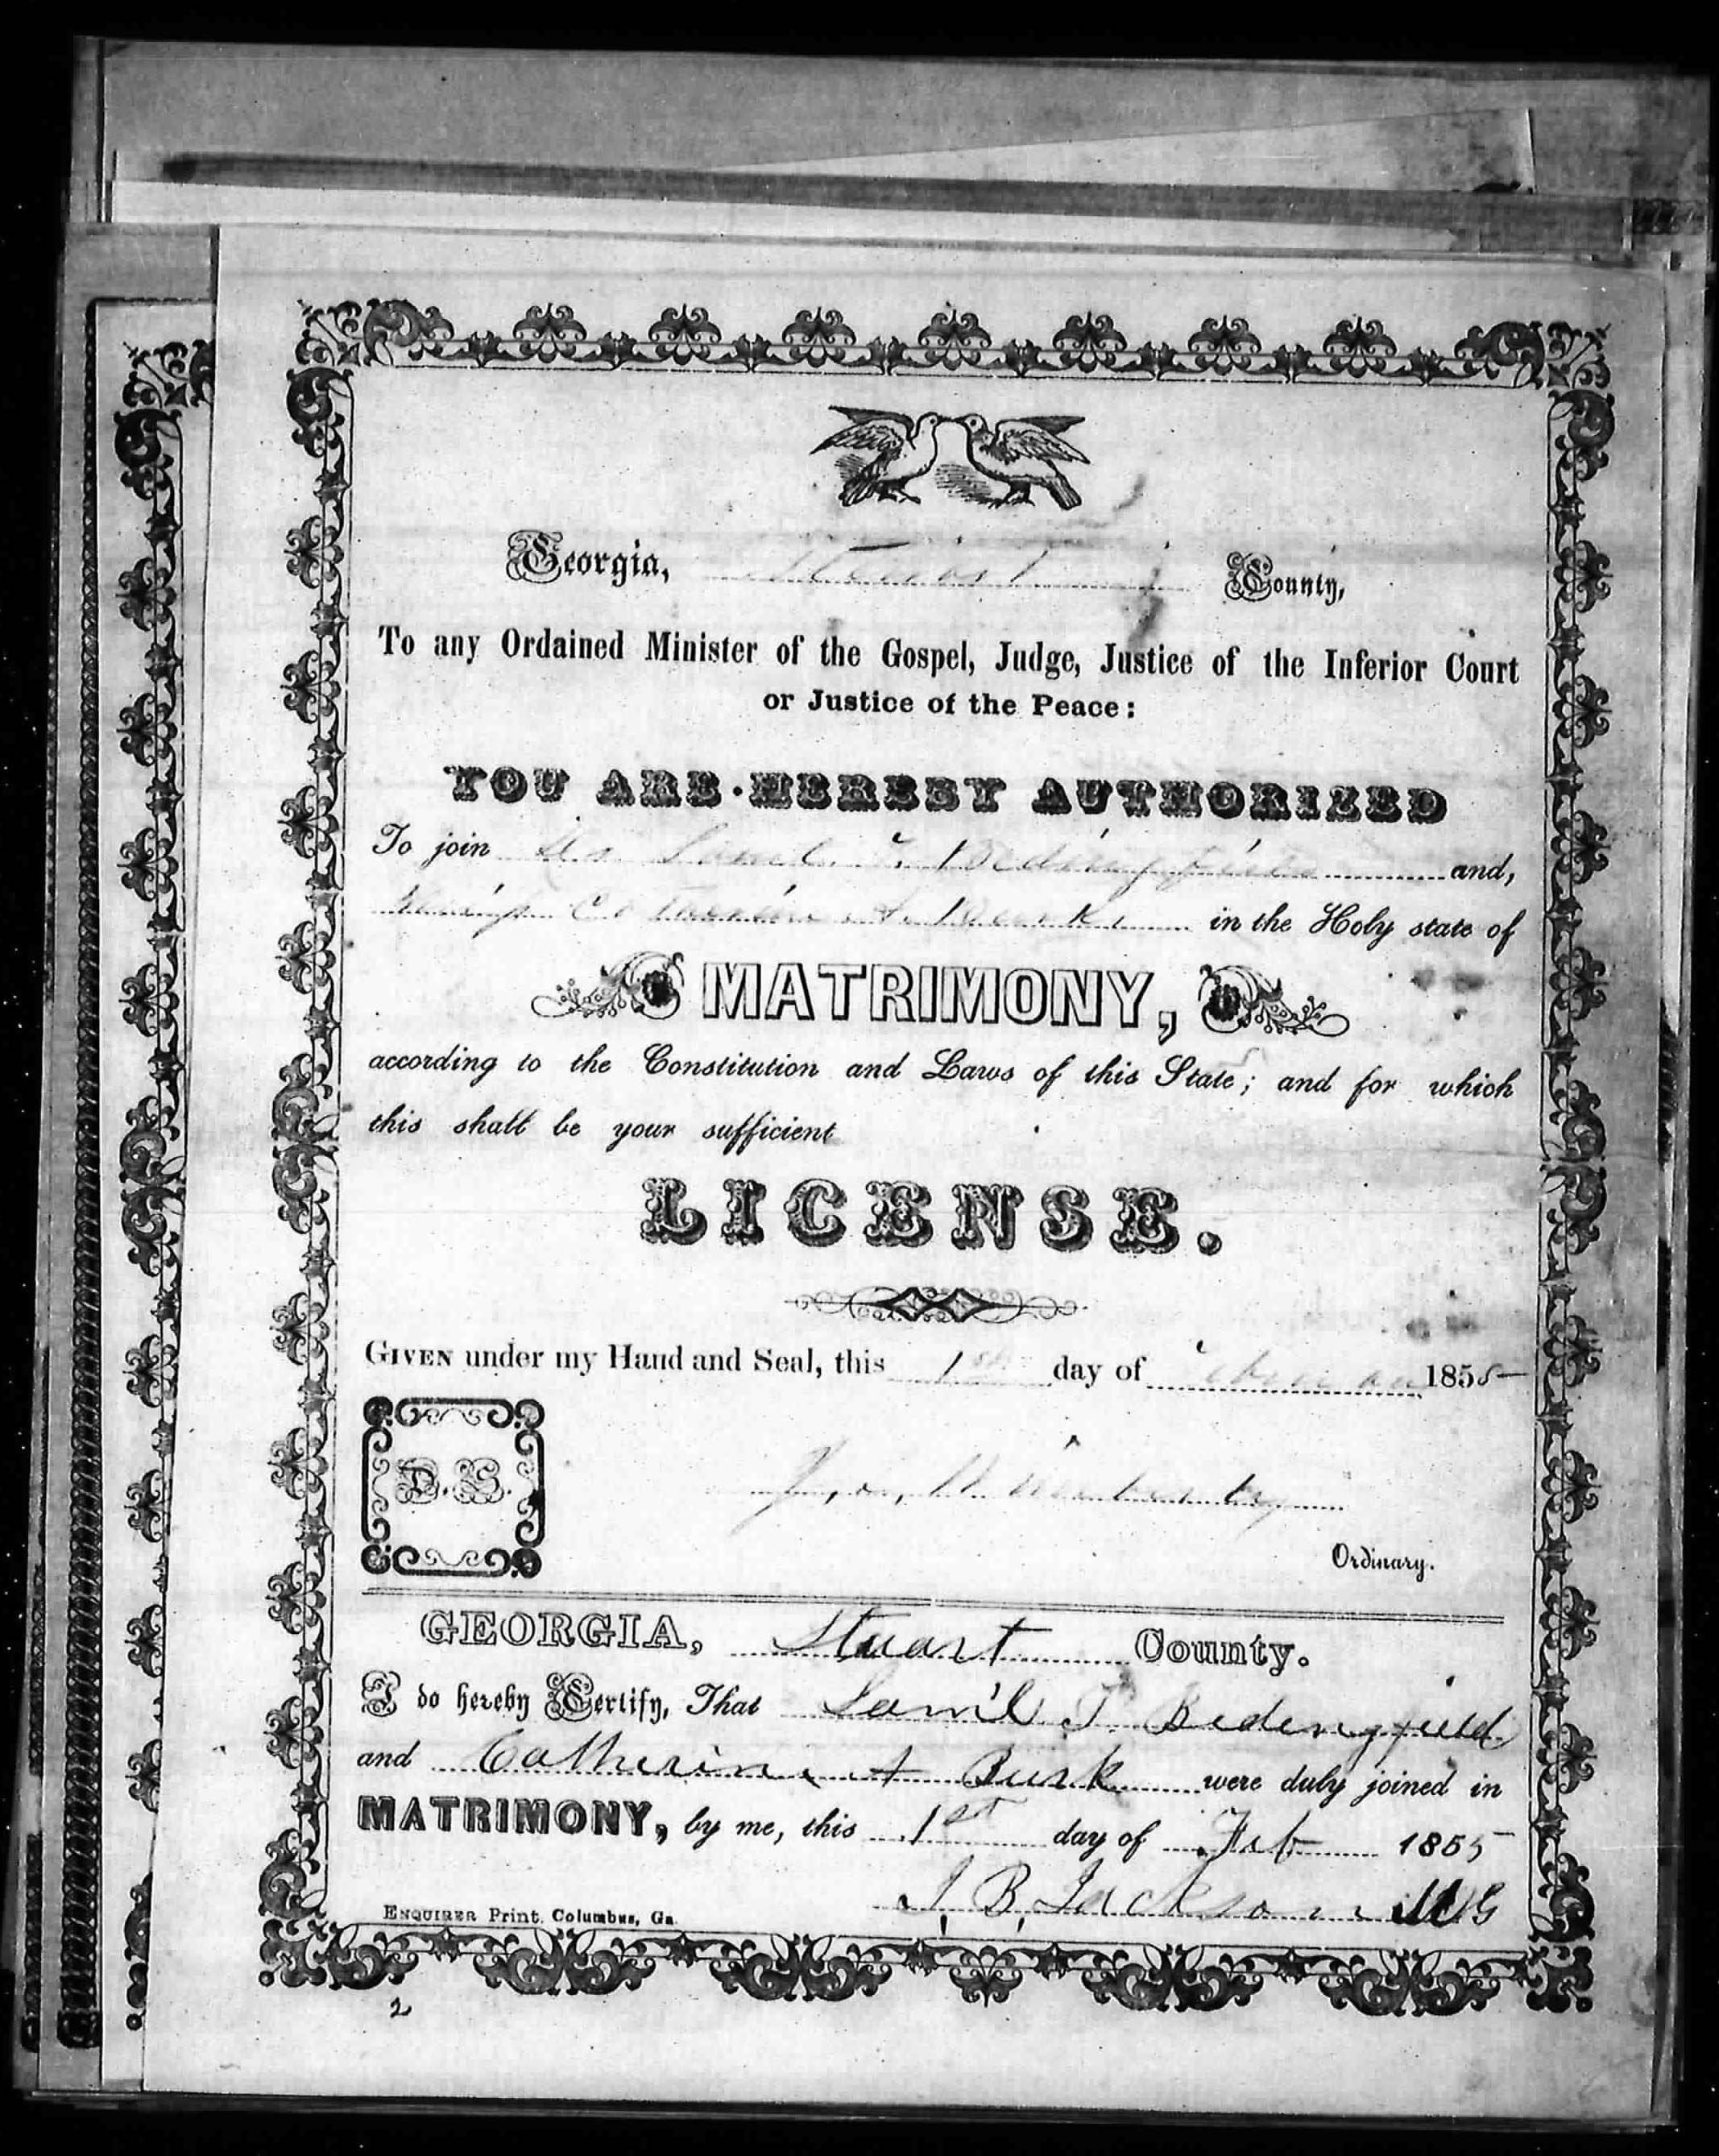 Georgia, Stewart County,
To any Ordained Minister of the Gospel, Judge, Justice of the Inferior Court
or Justice of the Peace:
YOU ARE HEREBY AUTHORIZED
To join Saml. T. Bedingfield and,
Miss Catherine A. Burk, in the Holy state of
MATRIMONY,
according to the Constitution and Laws of this State; and for which
this shall be your sufficient
LICENSE.
GIVEN under my Hand and Seal, this 1st day of 1855
Ordinary.
GEORGIA, Stuart County.
I do hereby Certify, That Sam'l T. Bedingfield
and Catherine A Burk were duly joined in
MATRIMONY, by me, this 1st day of Feb 1855
J. B. Jackson MG
ENQUIRER Print. Columbus, Ga
2